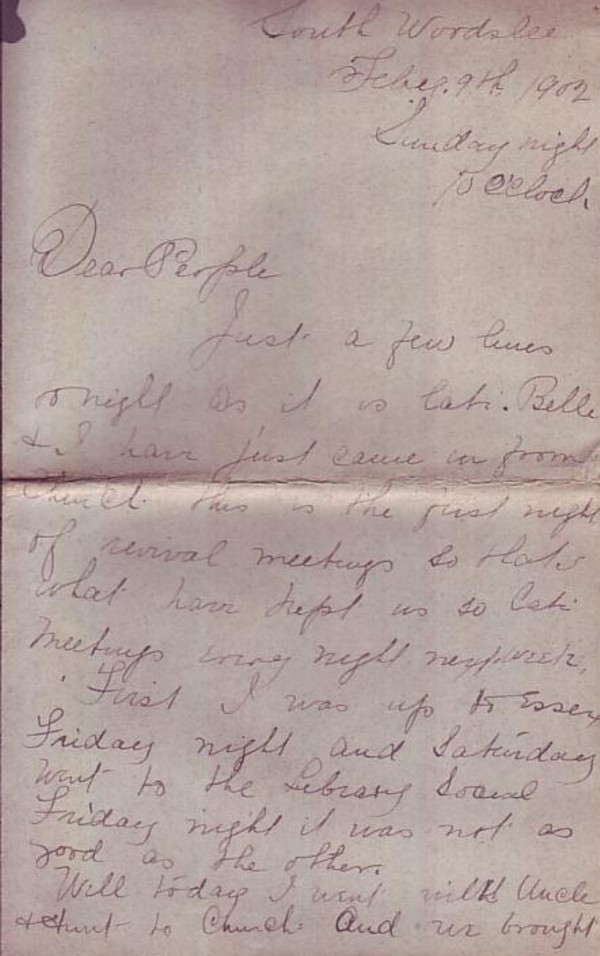 South Woodslee
Feby. 9th 1902
Sunday night
O'Cloch
Dear People
Just a few lines
onight as it is late. Belle
& I have just came in from
Church. this is the first night
of revival meetings so thats
what have kept us so late
Meetings every night next week.
First I was up to Essex
Friday night and Saturday
Went to the Library Social
Friday night it was not as
good as the other.
Well today I went with Uncle
& Aunt to Church And we brought